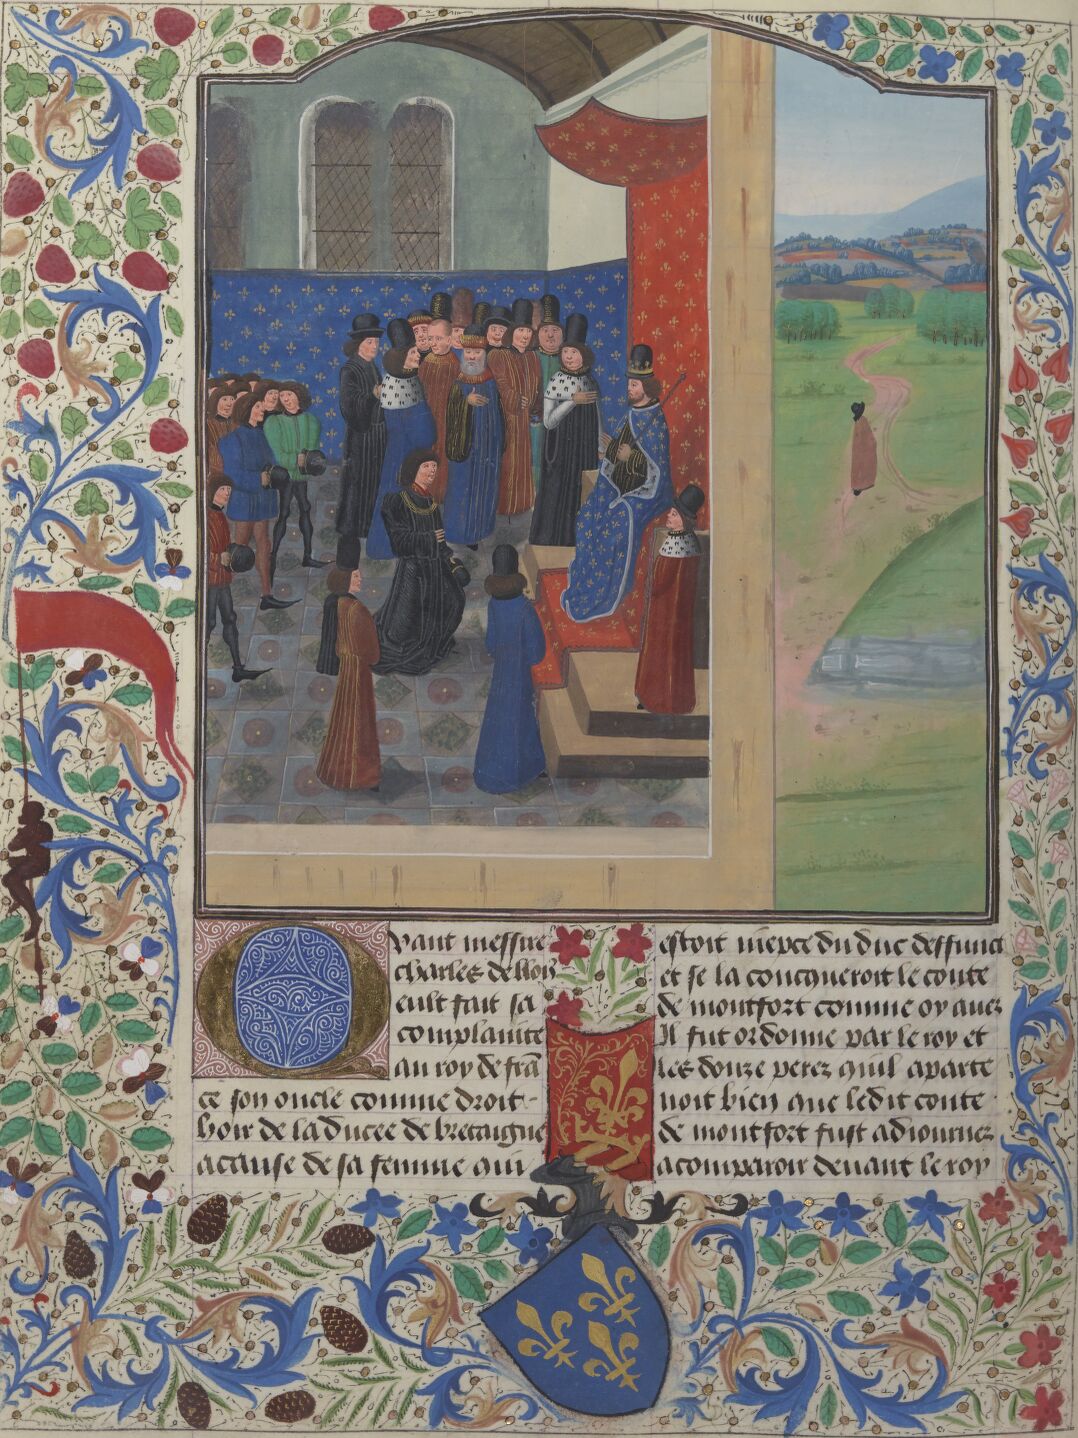 Quant messire
charles de blois
eult fait sa
complainte
au roy de frã
ce son oncle comme droit
hoir de la ducee de bretaigne
a cause de sa femme qui
estoit niepce du duc deffunct
et se la concqueroit le conte
de montfort comme oy avez
Il fut ordonne par le roy et
les douze perez quil aparte
noit bien que ledit conte
de montfort fust adiournez
a comparoir devant le roy